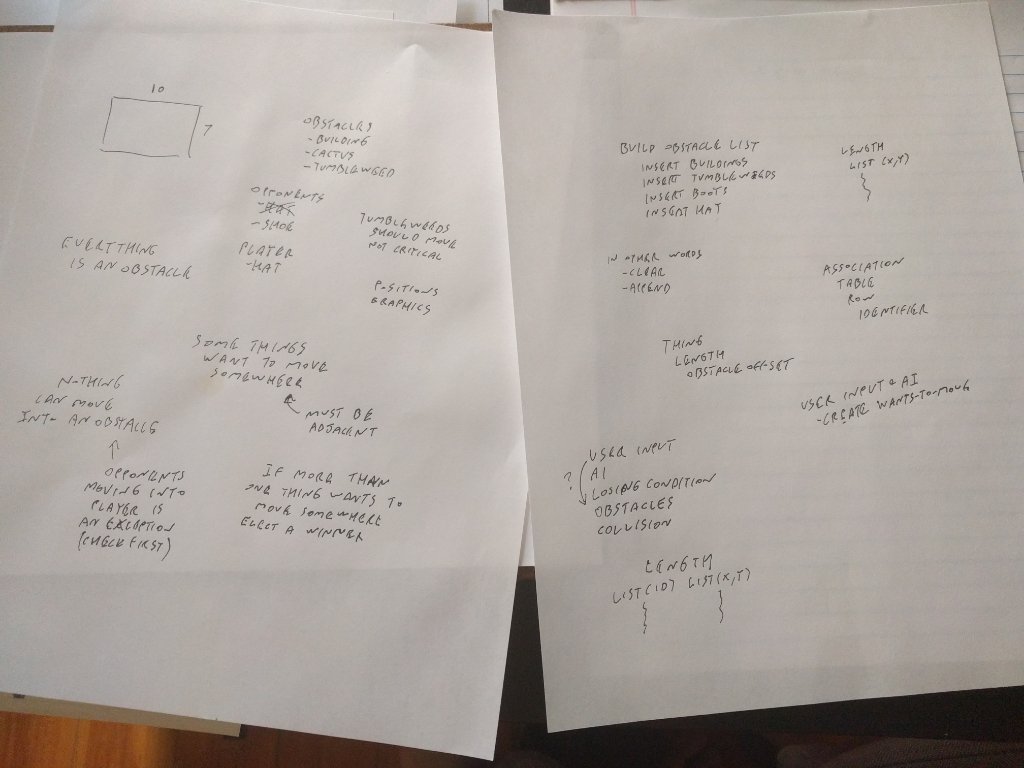 10
7
OBSTACLES
- BUILDING
- CACTUS
- TUMBLEWEED
OPPONENTS
- SHOE
PLAYER
- HAT
TUMBLEWEEDS
SHOULD MOVE
NOT CRITICAL
EVERYTHING
IS AN OBSTACLE
POSITIONS
GRAPHICS
SOME THINGS
WANT TO MOVE
SOMEWHERE
MUST BE
ADJACENT
NOTHING
CAN MOVE
INTO AN OBSTACLE
OPPONENTS
MOVING INTO
PLAYER IS
AN EXCEPTION
(CHECK FIRST)
IF MORE THAN
ONE THING WANTS TO
MOVE SOMEWHERE
ELECT A WINNER
BUILD OBSTACLE LIST
INSERT BUILDINGS
INSERT TUMBLEWEEDS
INSERT BOOTS
INSERT HAT
LENGTH
LIST (X,Y)
IN OTHER WORDS
- CLEAR
- APPEND
ASSOCIATION
TABLE
ROW
IDENTIFIER
THING
LENGTH
OBSTACLE OFFSET
USER INPUT & AI
- CREATE WANTS-TO-MOVE
USER INPUT
? AI
LOSING CONDITION
OBSTACLES
COLLISION
LENGTH
LIST(ID) LIST(X,Y)